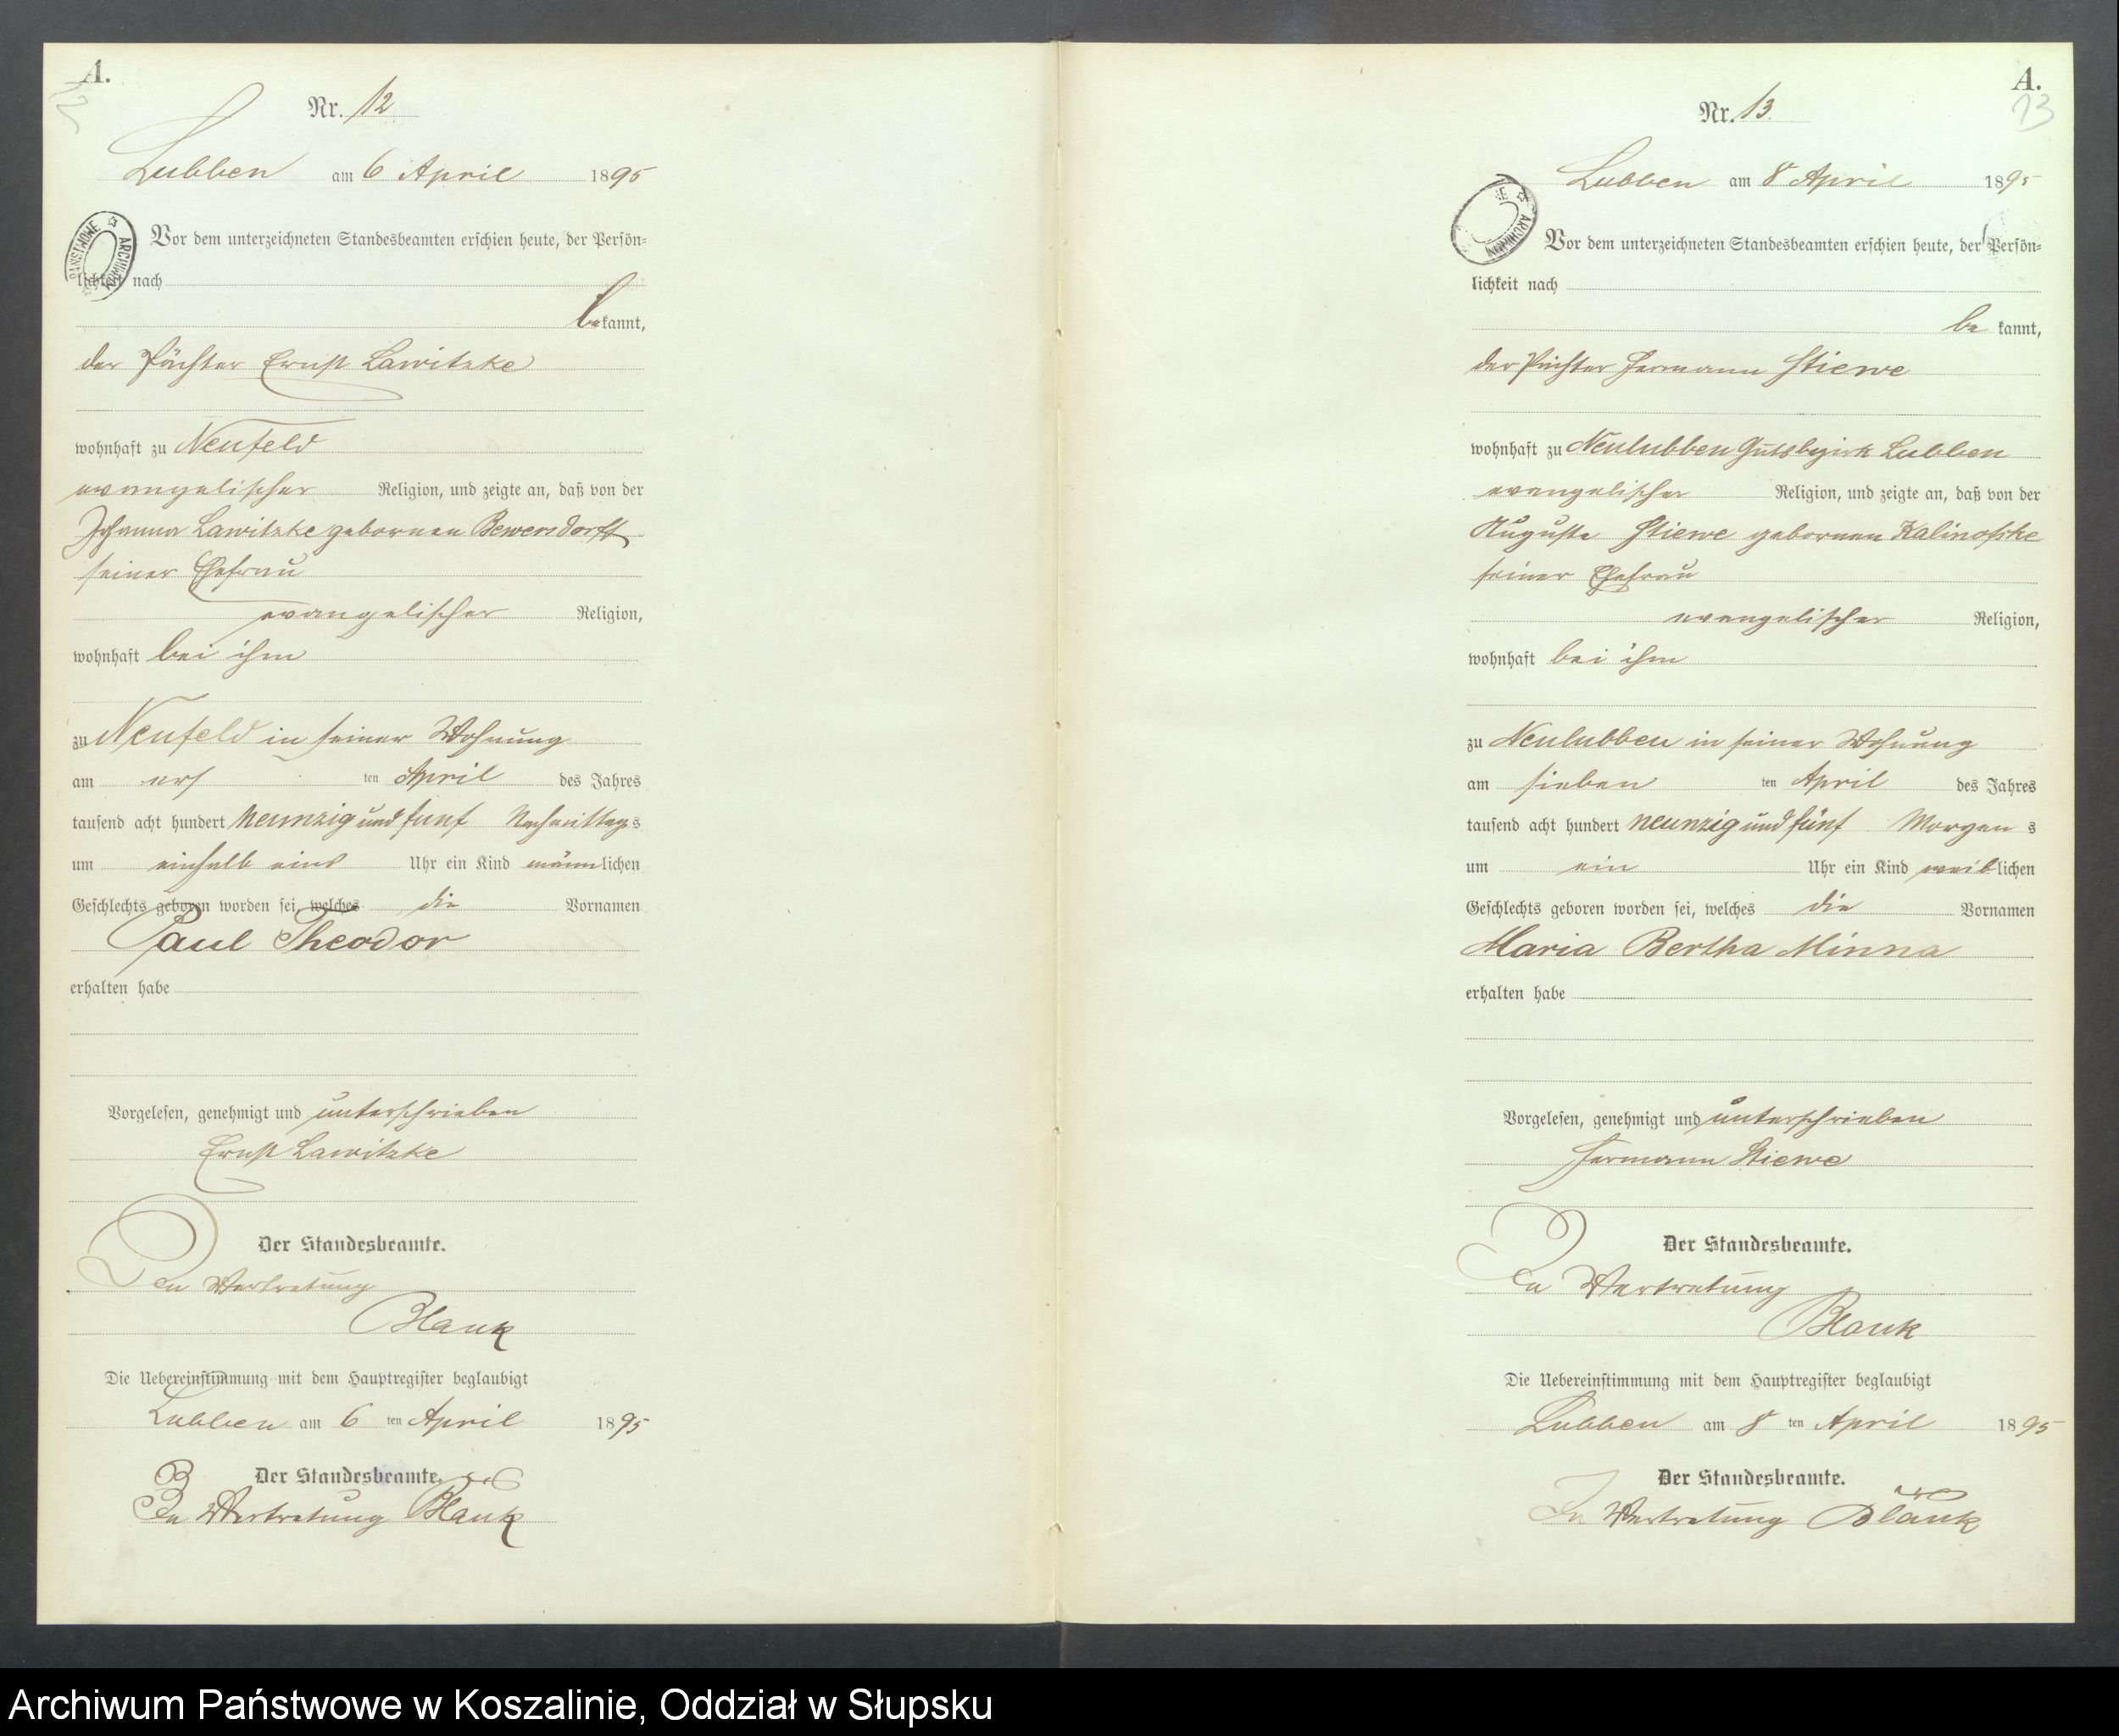 A.
12
Nr. 12
Lubben am 6 April 1895
Vor dem unterzeichneten Standesbeamten erschien heute, der Persön=
lichkeit nach
bekannt,
der Pächter Ernst Lawitzke
wohnhaft zu Neufeld
evangelischer Religion, und zeigte an, daß von der
Johanna Lawitzke gebornen Bewersdorff
seiner Ehefrau
evangelischer Religion,
wohnhaft bei ihm
zu Neufeld in seiner Wohnung
am ers ten April des Jahres
tausend acht hundert neunzig und fünf Nachmittags
um einhalb eins Uhr ein Kind männlichen
Geschlechts geboren worden sei, welches die Vornamen
Paul Theodor
erhalten habe
Vorgelesen, genehmigt und unterschrieben
Ernst Lawitzke
Der Standesbeamte.
In Vertretung
Blank
Die Uebereinstimmung mit dem Hauptregister beglaubigt
Lubben am 6 ten April 1895
Der Standesbeamte.
In Vertretung Blank
A.
13
Nr. 13.
Lubben am 8 April 1895
Vor dem unterzeichneten Standesbeamten erschien heute, der Persön=
lichkeit nach
be kannt,
der Pächter Hermann Stiewe
wohnhaft zu Neulubben Gutsbezirk Lubben
evangelischer Religion, und zeigte an, daß von der
Auguste Stiewe gebornen Kalinofske
seiner Ehefrau
evangelischer Religion,
wohnhaft bei ihm
zu Neulubben in seiner Wohnung
am sieben ten April des Jahres
tausend acht hundert neunzig und fünf Morgen s
um ein Uhr ein Kind weiblichen
Geschlechts geboren worden sei, welches die Vornamen
Maria Bertha Minna
erhalten habe
Vorgelesen, genehmigt und unterschrieben
Hermann Stiewe
Der Standesbeamte.
In Vertretung
Blank
Die Uebereinstimmung mit dem Hauptregister beglaubigt
Lubben am 8 ten April 1895
Der Standesbeamte.
In Vertretung Blank
Archiwum Państwowe w Koszalinie, Oddział w Słupsku